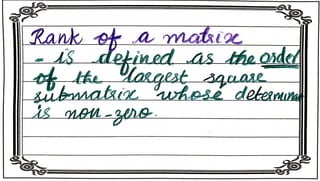 Rank of a matrix
- is defined as the order
of the largest square
submatrix whose determinant
is non-zero.